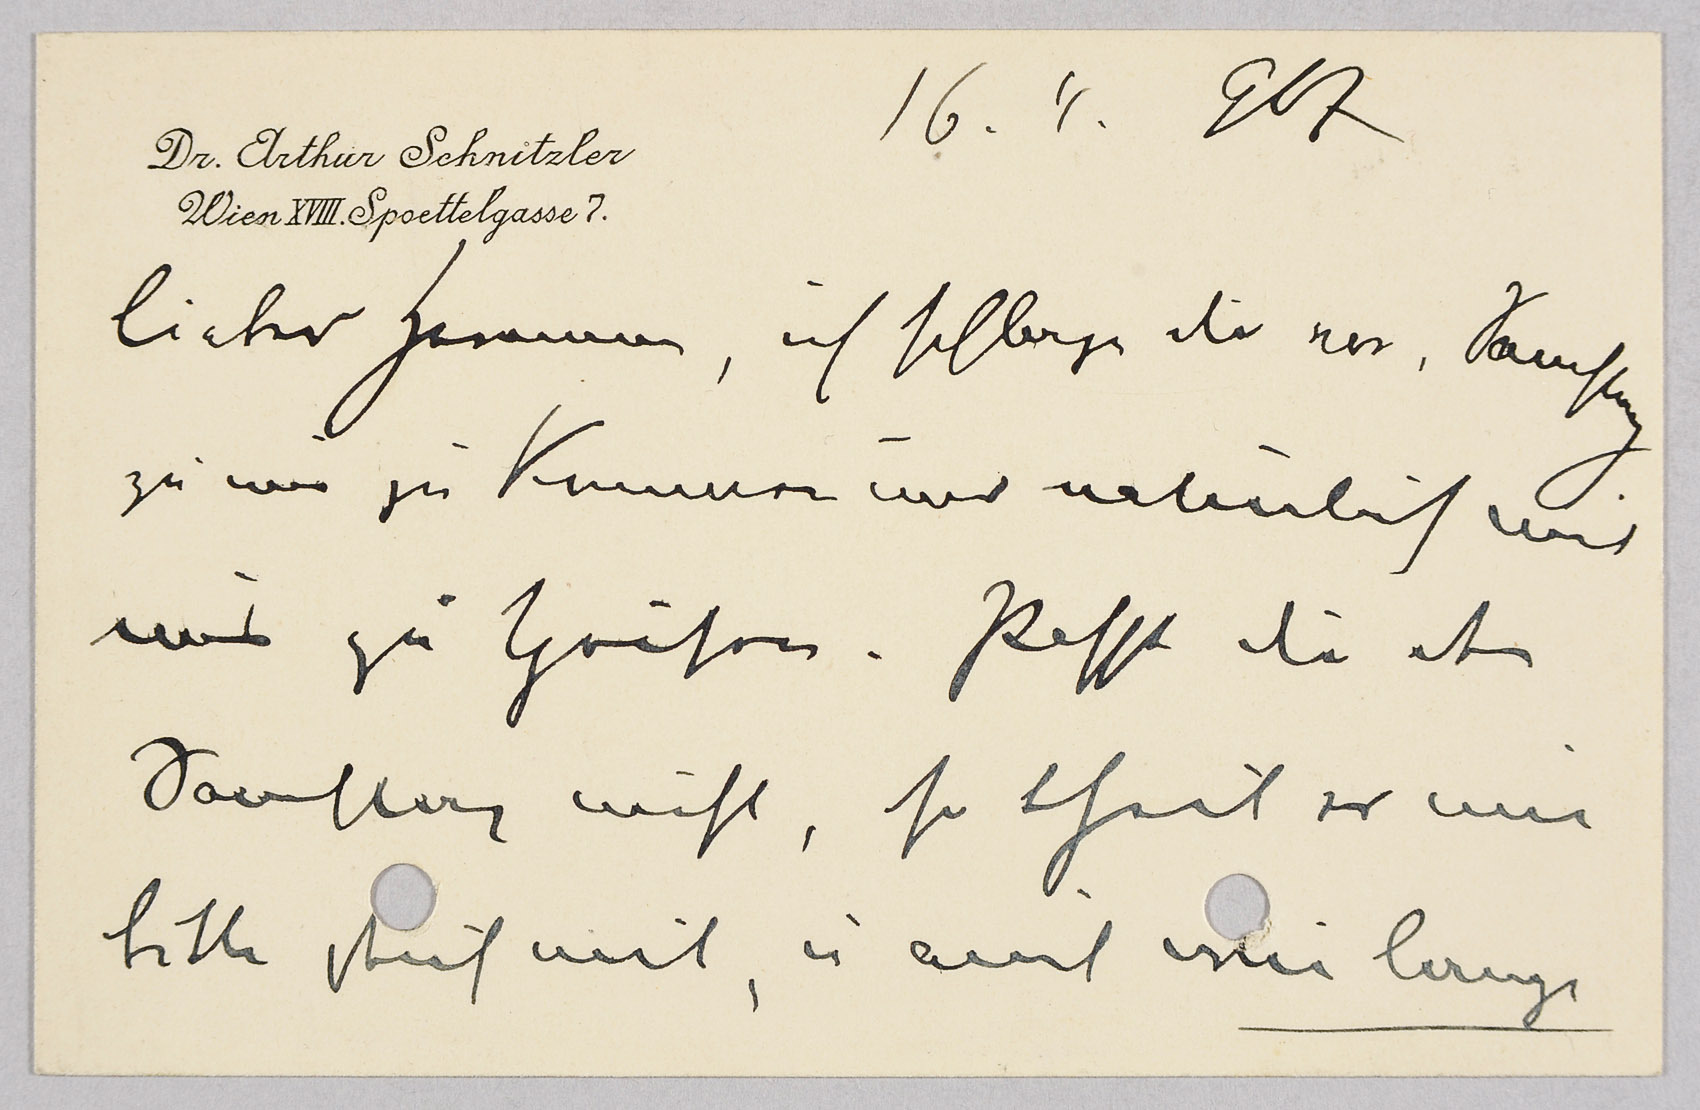 16. 4. 907
Dr. Arthur Schnitzler
Wien XVIII. Spoettelgasse 7.
lieber Hermann, ich schlage dir vor, Samstag
zu mir zu kommen und natürlich mit
mir zu speisen. Passt dir aber
Samstag nicht, so theil es mir
bitte gleich mit, u auch wie lange